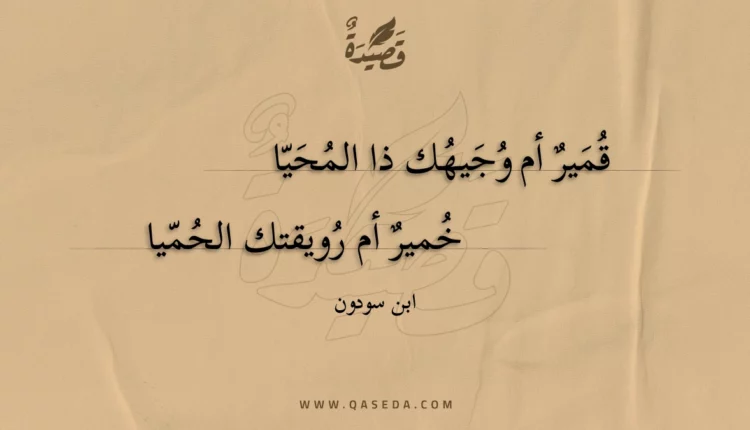 قَصِيْدَةٌ
قُمَيرٌ أم وُجَيهُك ذا المُحَيّا
خُميرٌ أم رُويقتك الحُمّيا
ابن سودون
WWW.QASEDA.COM